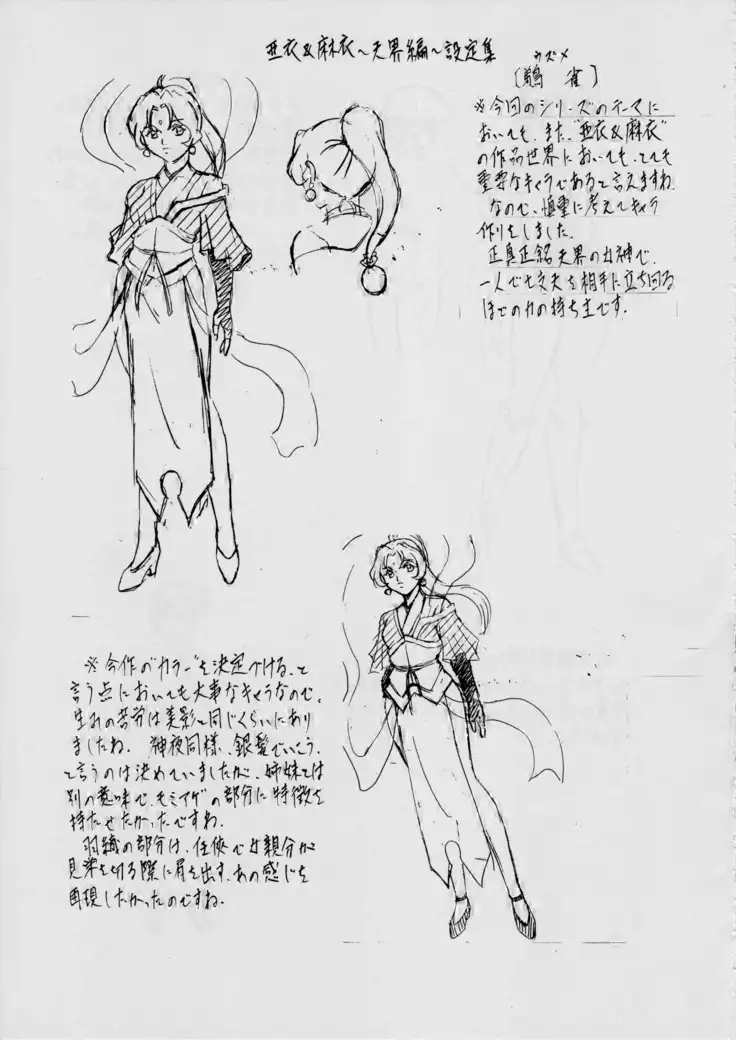 亜衣&麻衣〜天界編〜設定集
ウズメ
[鵐 雀]
※今回のシリーズのテーマに
おいても、また、"亜衣&麻衣"
の作品世界においても、とても
重要なキャラであると言えますね。
なので、慎重に考えてキャラ
作りをしました。
正真正銘天界の女神で、
一人で七丈夫を相手に立ち回る
ほどの力の持ち主です。
※今作の"カラー"を決定付ける、と
言う点においても大事なキャラなので、
生みの苦労は美影と同じくらいにあり
ましたね。神夜同様、銀髪でいこう、
と言うのは決めていましたが、姉妹とは
別の意味で、モミアゲの部分に特徴を
持たせたかったですね。
羽織の部分は、任侠で女親分が
見栄を切る際に肩を出す、あの感じを
再現したかったのですね。